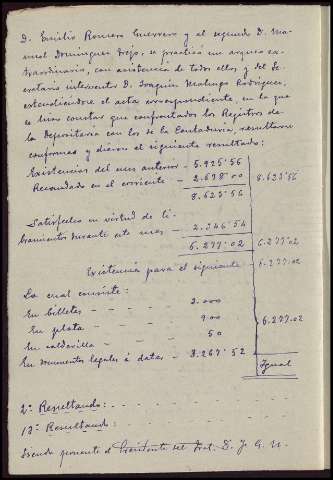 D. Emilio Romero Guerrero y el segundo D. Ma-
nuel Dominguez Trejo, se practicó un arqueo ex-
traordinario, con asistencia de todos ellos y del Se-
cretario interventor D. Joaquin Rodriguez,
extendiendose el acta correspondiente, en la que
se hace constar que confrontados los Registros de
la Depositaria con los de la Contaduria, resultaron
conformes y dieron el siguiente resultado:
Existencias del mes anterior - 5.925'56
Recaudado en el corriente - 2.698'00 8.623'56
8.623'56
Satisfecho en virtud de li-
bramientos durante este mes - 2.346'54
6.277'02 6.277'02
Existencia para el siguiente - 6.277.02
La cual consiste:
En billetes - - - - 2.000
En plata - - - - 900 6.277.02
En calderilla - - - - 50
En documentos legales á datar - 3.267'52
Igual
2º Resultando: - - - - - - -
13º Resultando: - - - - - - -
Siendo ponente el Presidente del Trat. D. J. G. N.